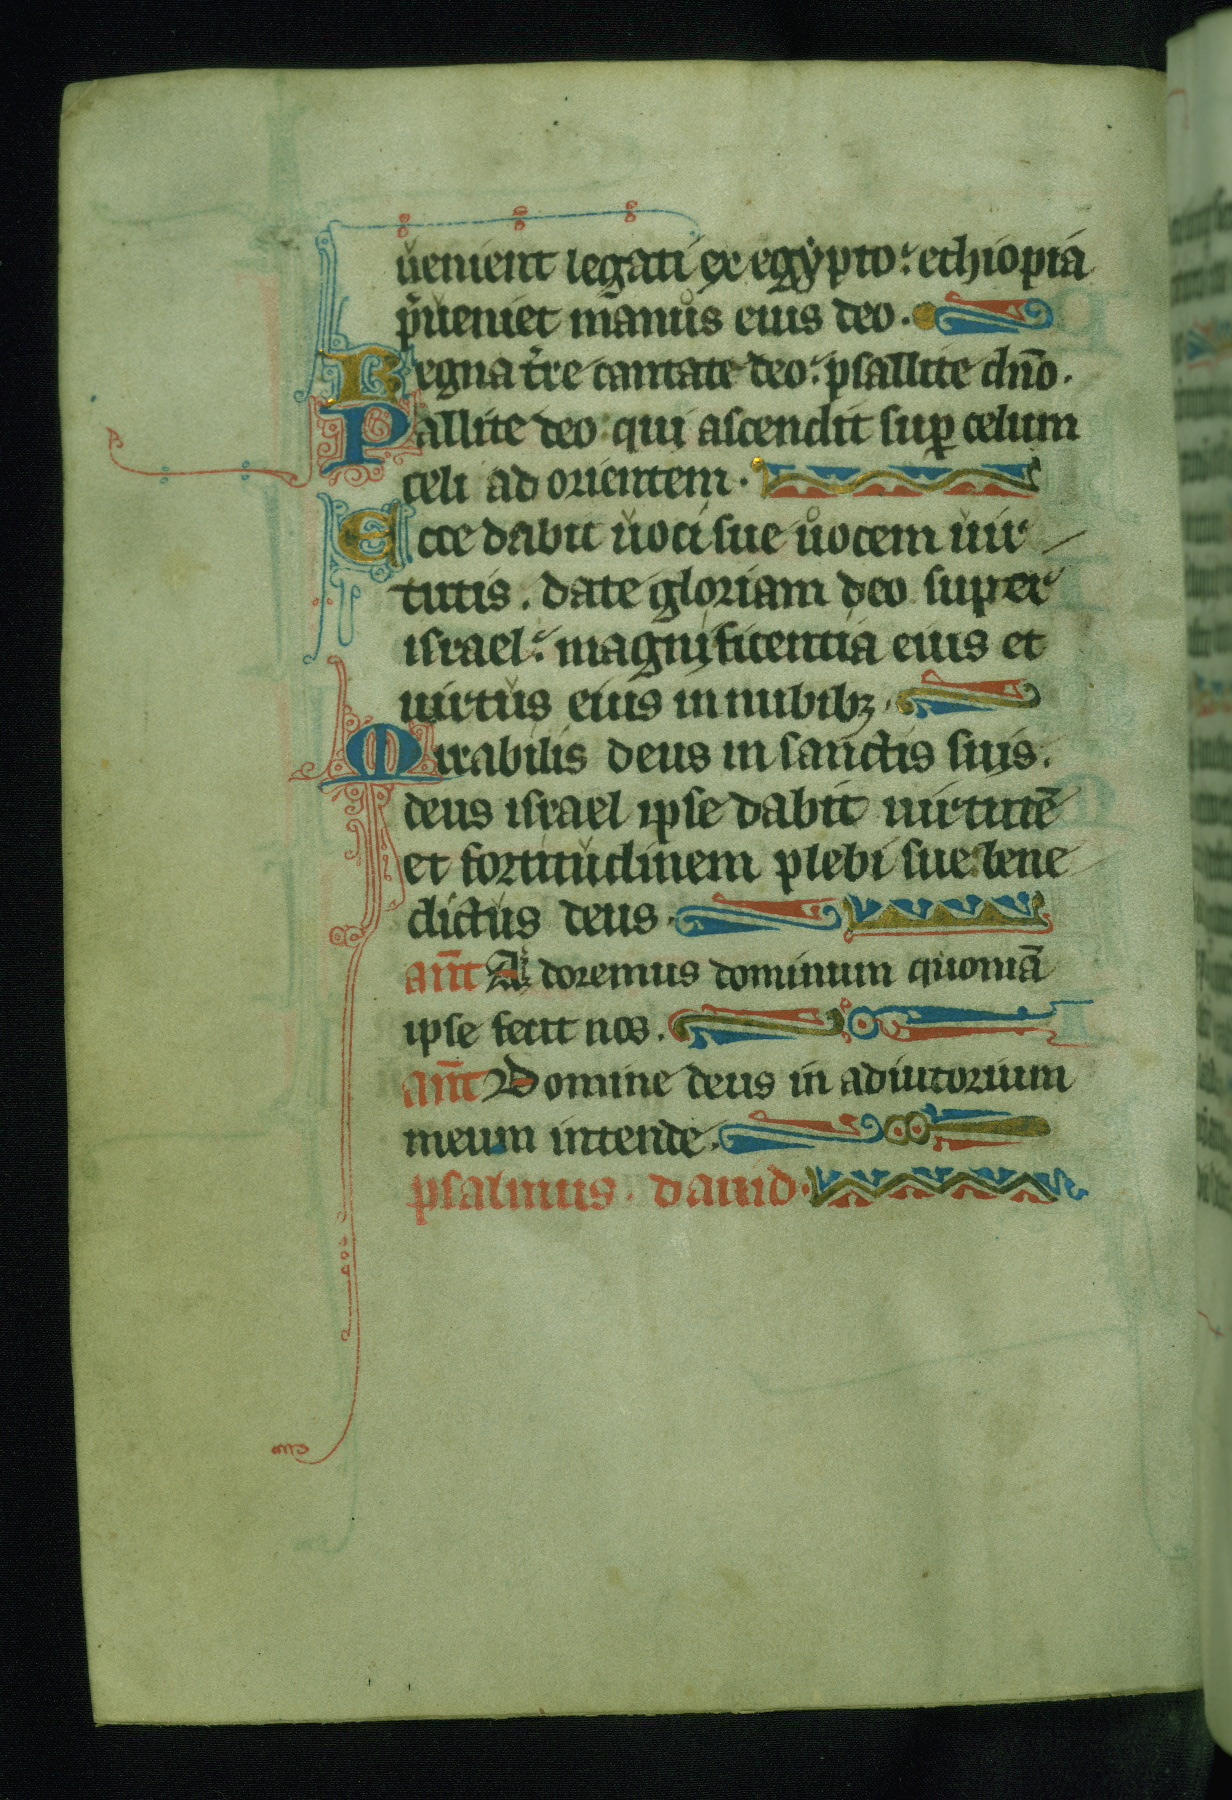 uenient legati ex egypto: ethiopia
p̄ueniet manus eius deo.
Regna tr̄re cantate deo: psallite dn̄o.
Psallite deo qui ascendit sup̱ celum
celi ad orientem.
Ecce dabit uoci sue uocem uir
tutis. date gloriam deo super
israel: magnificentia eius et
uirtus eius in nubibꝫ.
Mirabilis deus in sanctis suis.
deus israel ipse dabit uirtutē
et fortitudinem plebi sue bene
dictus deus.
an̄t Adoremus dominum quoniā
ipse fecit nos.
an̄t Domine deus in adiutorium
meum intende.
psalmus. dauid.